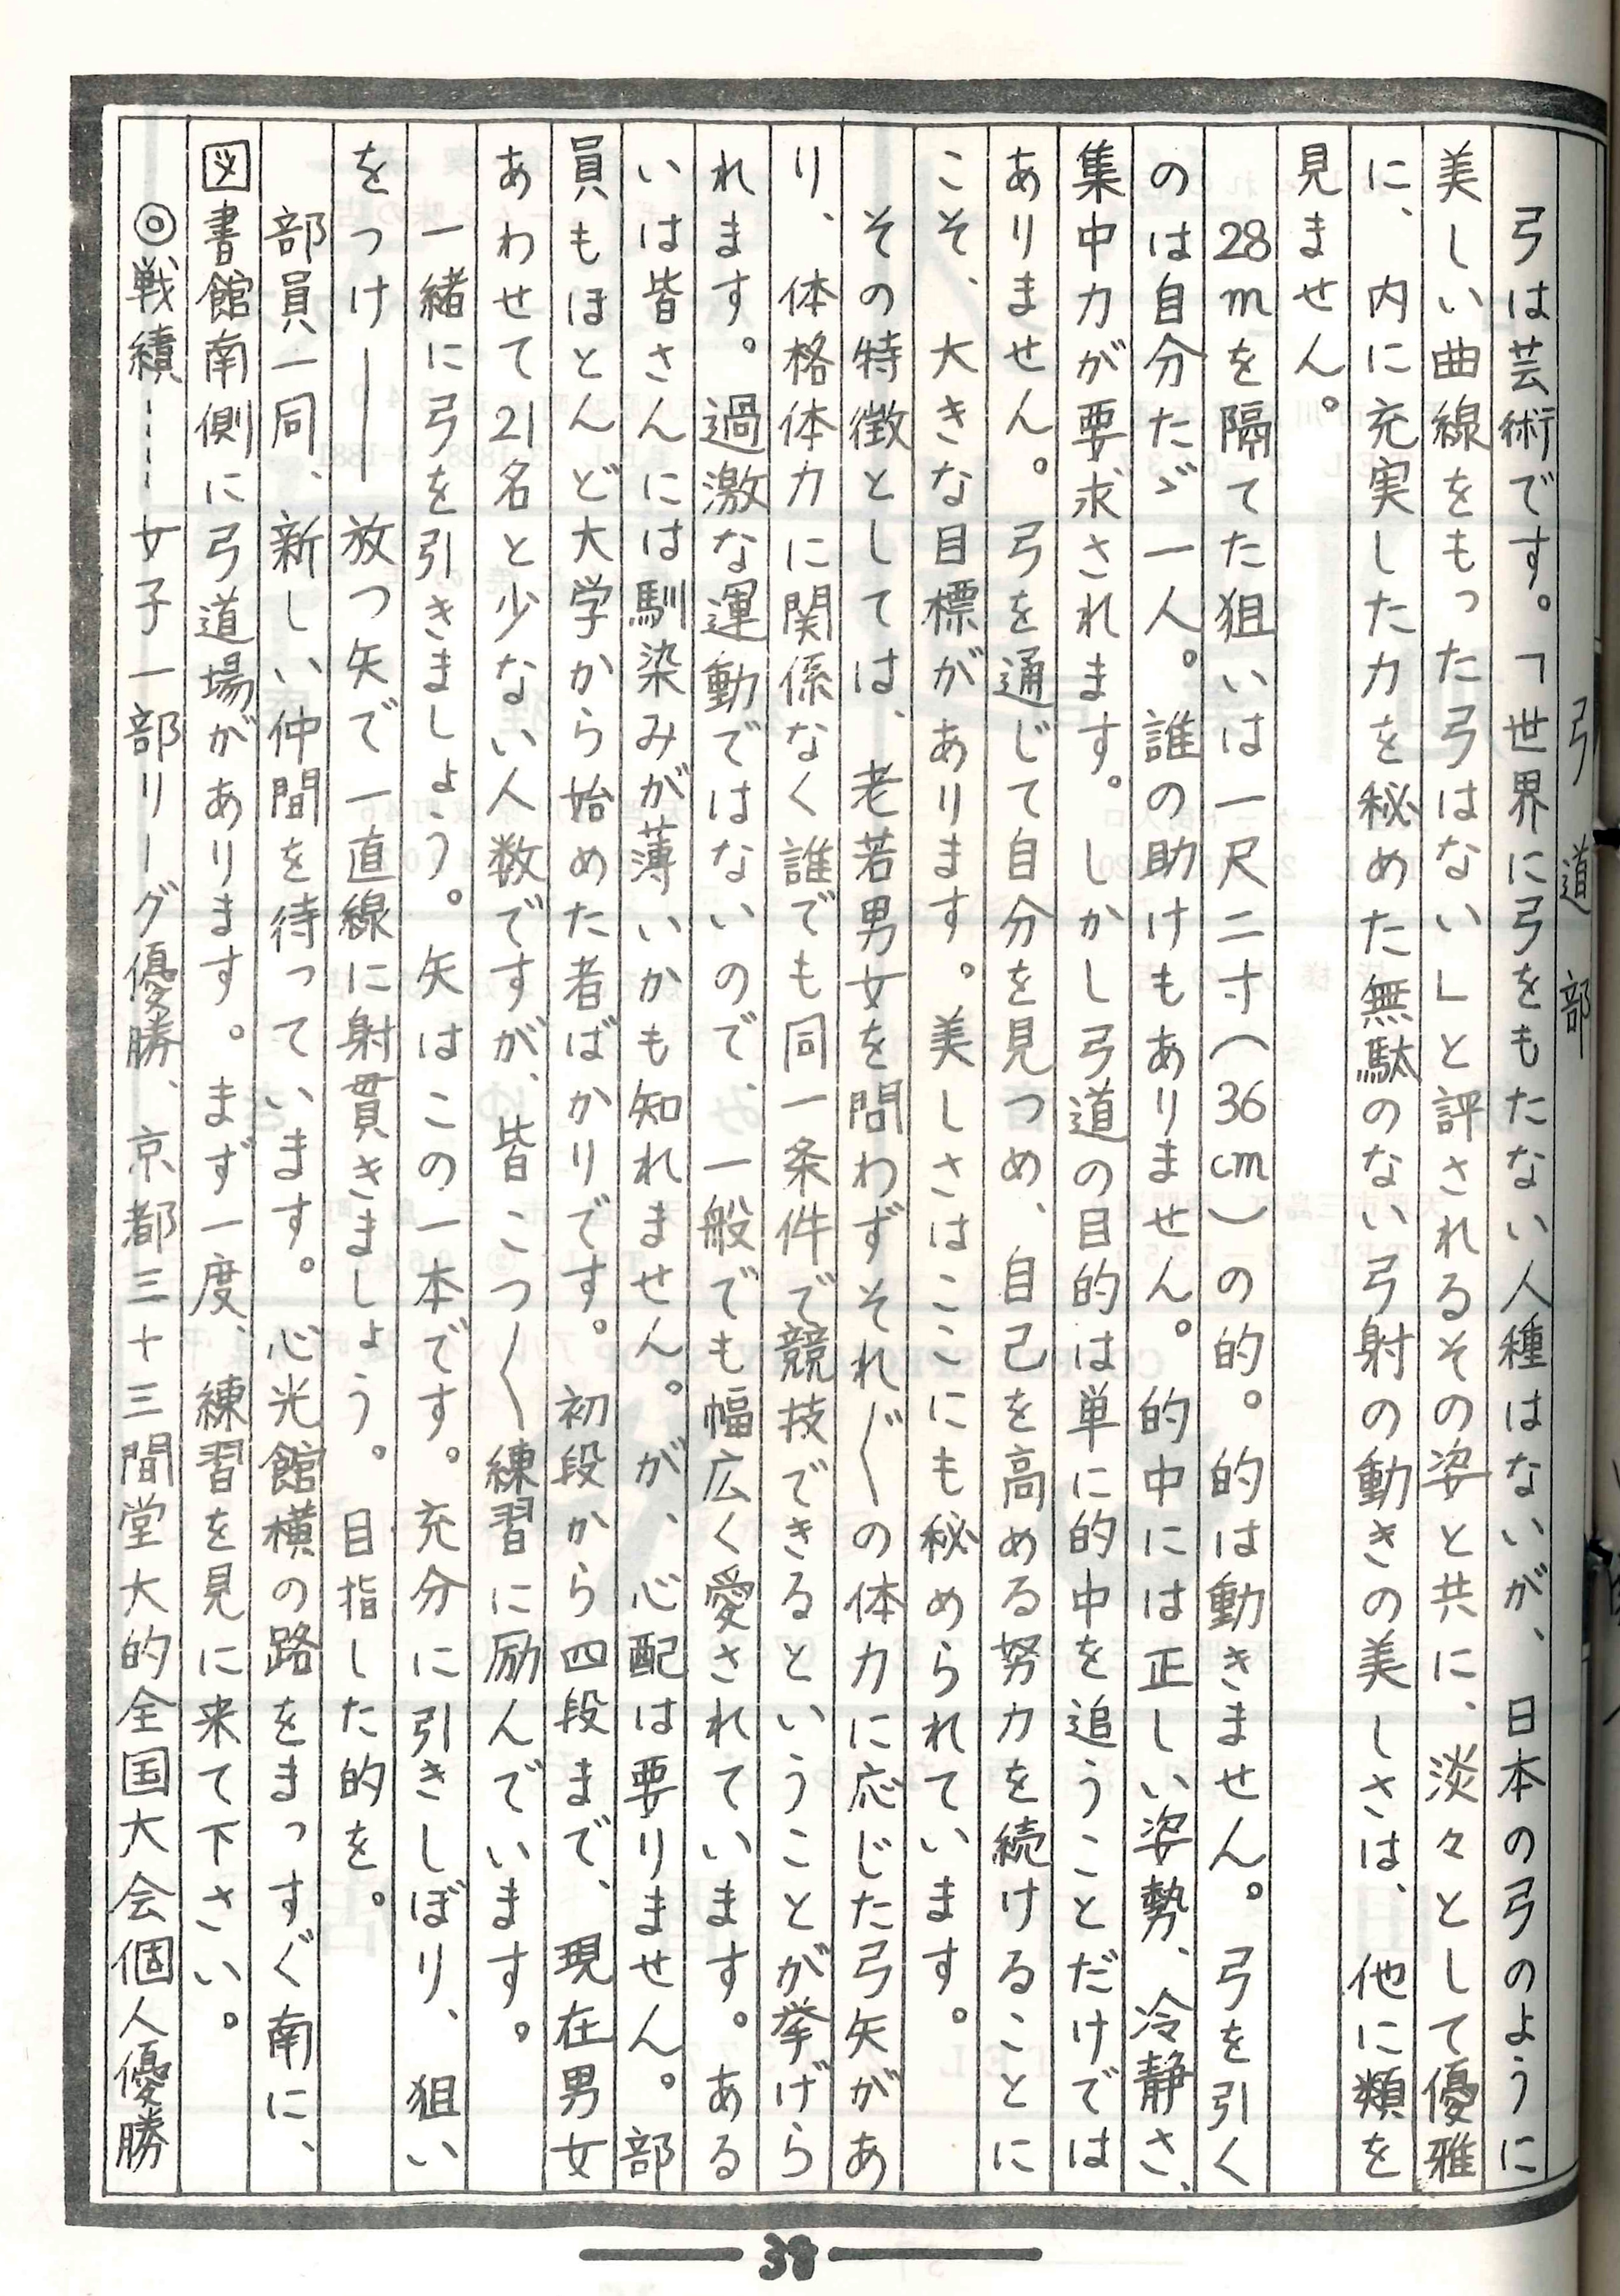 弓道部
弓は芸術です。「世界に弓をもたない人種はないが、日本の弓のように
美しい曲線をもった弓はない」と評されるその姿と共に、淡々として優雅
に、内に充実した力を秘めた無駄のない弓射の動きの美しさは、他に類を
見ません。
28mを隔てた狙いは一尺二寸(36cm)の的。的は動きません。弓を引く
のは自分たゞ一人。誰の助けもありません。的中には正しい姿勢、冷静さ、
集中力が要求されます。しかし弓道の目的は単に的中を追うことだけでは
ありません。弓を通じて自分を見つめ、自己を高める努力を続けることに
こそ、大きな目標があります。美しさはここにも秘められています。
その特徴としては、老若男女を問わずそれ〴〵の体力に応じた弓矢があ
り、体格体力に関係なく誰でも同一条件で競技できるということが挙げら
れます。過激な運動ではないので、一般でも幅広く愛されています。ある
いは皆さんには馴染みが薄いかも知れません。が、心配は要りません。部
員もほとんど大学から始めた者ばかりです。初段から四段まで、現在男女
あわせて21名と少ない人数ですが、皆こつ〳〵練習に励んでいます。
一緒に弓を引きましょう。矢はこの一本です。充分に引きしぼり、狙い
をつけ――放つ矢で一直線に射貫きましょう。目指した的を。
部員一同、新しい仲間を待っています。心光館横の路をまっすぐ南に、
図書館南側に弓道場があります。まず一度、練習を見に来て下さい。
◎戦績……女子一部リーグ優勝、京都三十三間堂大的全国大会個人優勝